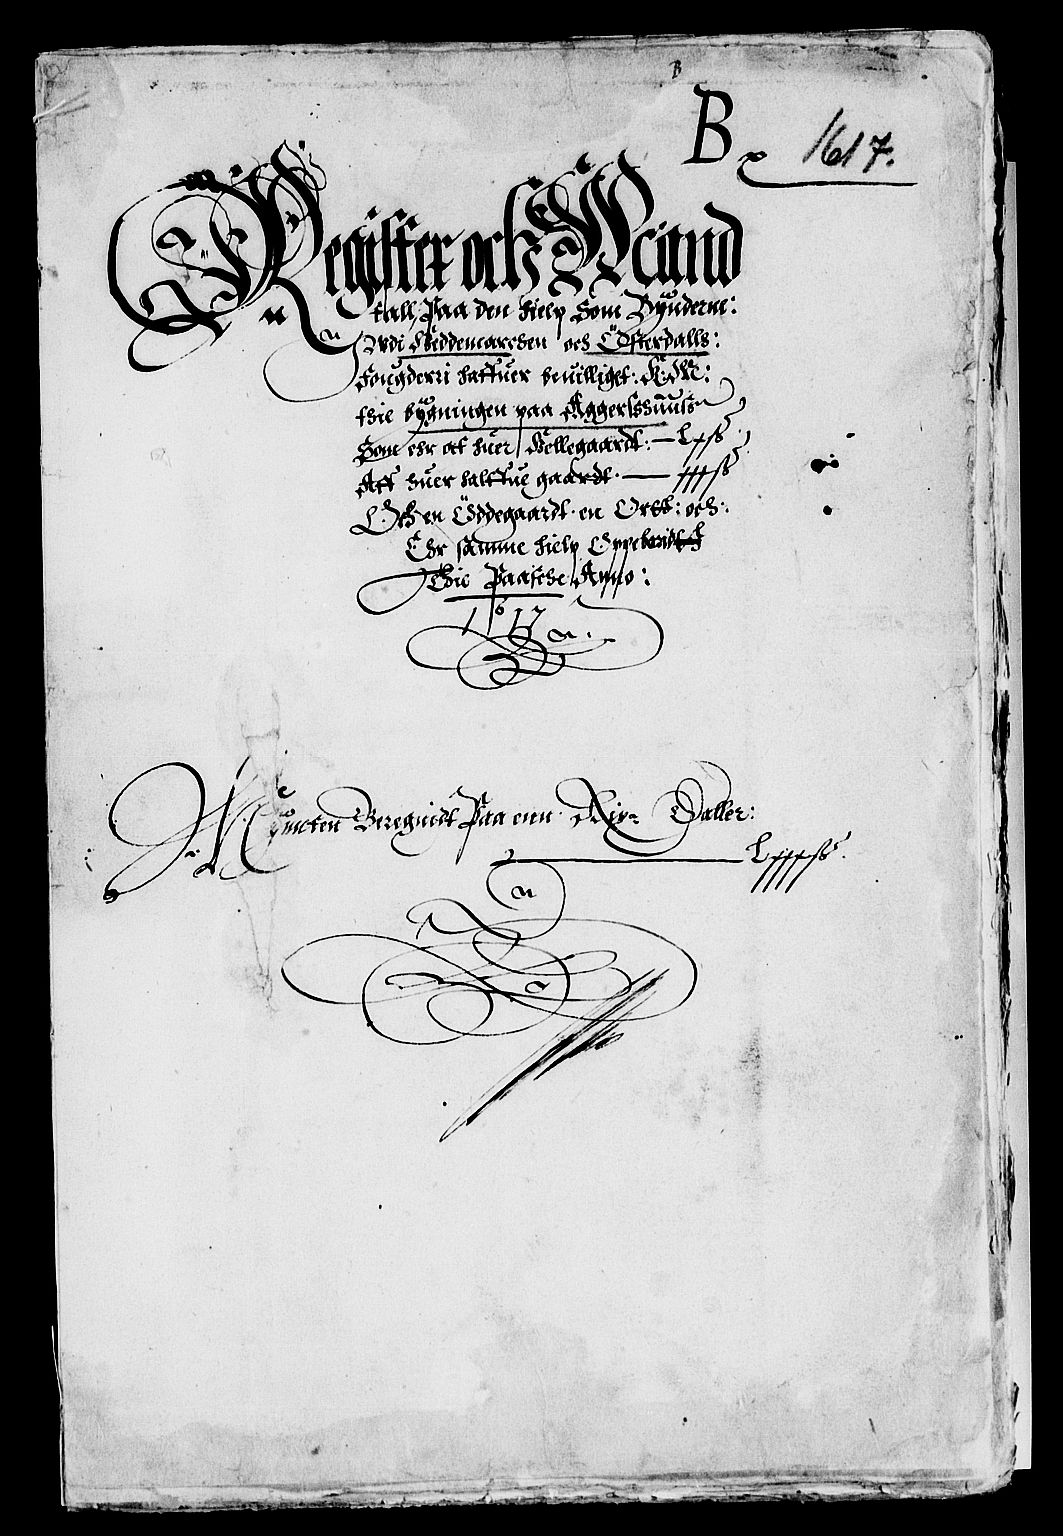 B
B 1617.
Register och Mand
tall, Paa den hielp Som Bÿnderne:
Udi Heddemarchen och Østerdalls:
Fougderri haffuer beuilliget: K: M:
thie bÿgningen paa Aggerszhuus
Som ehr aff huer Hellegaardt: — Ljß
Aff huer halffue gaardt — jjjß
Och en Øddegaardt en Ortt: och:
Ehr samme hielp Oppeboridt
Thie Paasche Anno:
1617
Mÿnten Beregnidt Paa enn Rix Daller:
Ljjjjß